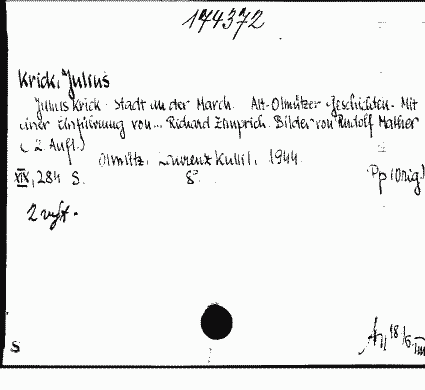 174372
Krick, Julius
Julius Krick: Stadt an der March. Alt-Olmützer Geschichten. Mit
einer Einführung von... Richard Zimprich. Bilder von Rudolf Mather
(2. Aufl.)
Olmütz: Laurenz Kullil, 1944.
XIX, 284 S. 8° Pp (Orig)
2 verst.
18/6
S